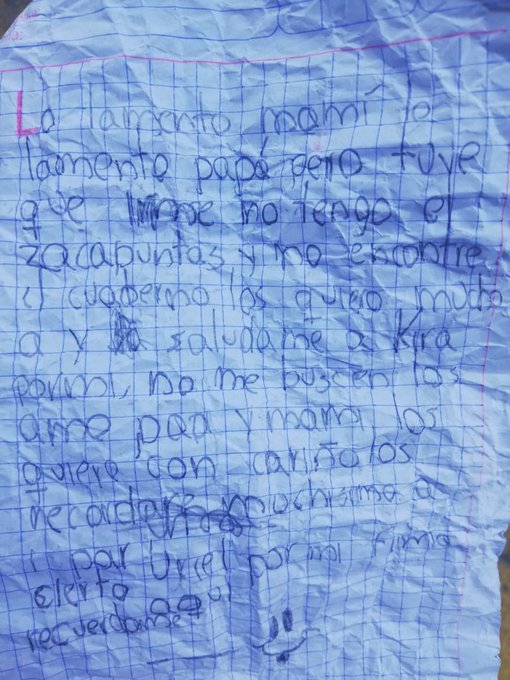 Lo lamento mami lo
lamento papá pero tuve
que irme no tengo el
zacapuntas y no encontre
el cuaderno los quiero mucho
a y saludame a Kira
pormi, no me buscen los
ame papa y mami los
quiere con cariño los
recordere muchisimo a
i por Uriel por mi firma
cierto aqui
recuerdame